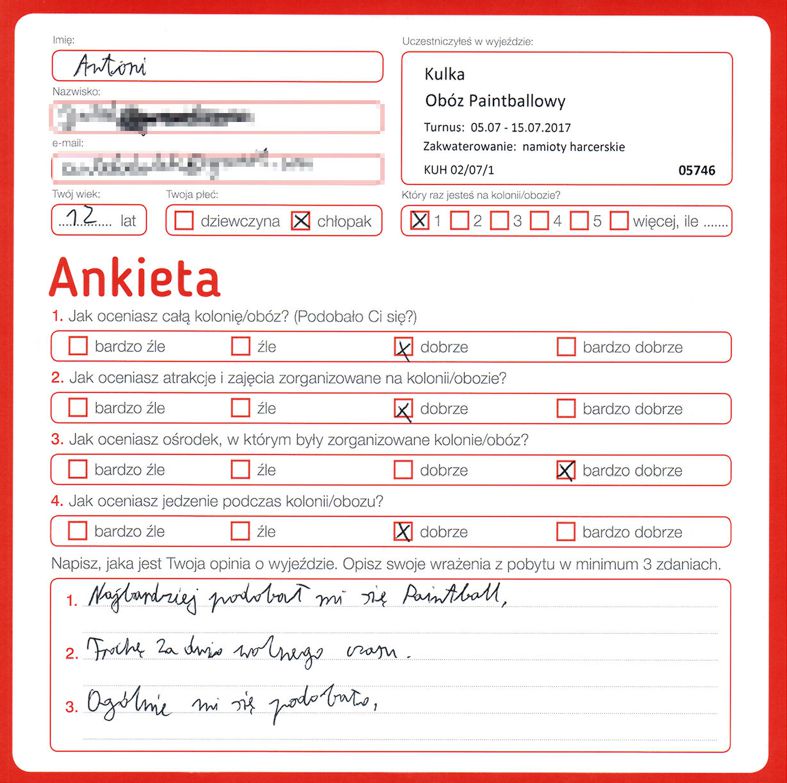 Imię:
Antoni
Nazwisko:
e-mail:
Twój wiek:
12 lat
Twoja płeć:
dziewczyna chłopak
Uczestniczyłeś w wyjeździe:
Kulka
Obóz Paintballowy
Turnus: 05.07 - 15.07.2017
Zakwaterowanie: namioty harcerskie
KUH 02/07/1 05746
Który raz jesteś na kolonii/obozie?
1 2 3 4 5 więcej, ile .......
Ankieta
1. Jak oceniasz całą kolonię/obóz? (Podobało Ci się?)
bardzo źle źle dobrze bardzo dobrze
2. Jak oceniasz atrakcje i zajęcia zorganizowane na kolonii/obozie?
bardzo źle źle dobrze bardzo dobrze
3. Jak oceniasz ośrodek, w którym były zorganizowane kolonie/obóz?
bardzo źle źle dobrze bardzo dobrze
4. Jak oceniasz jedzenie podczas kolonii/obozu?
bardzo źle źle dobrze bardzo dobrze
Napisz, jaka jest Twoja opinia o wyjeździe. Opisz swoje wrażenia z pobytu w minimum 3 zdaniach.
1. Najbardziej podobał mi się Paintball,
2. Trochę za dużo wolnego czasu.
3. Ogólnie mi się podobało,